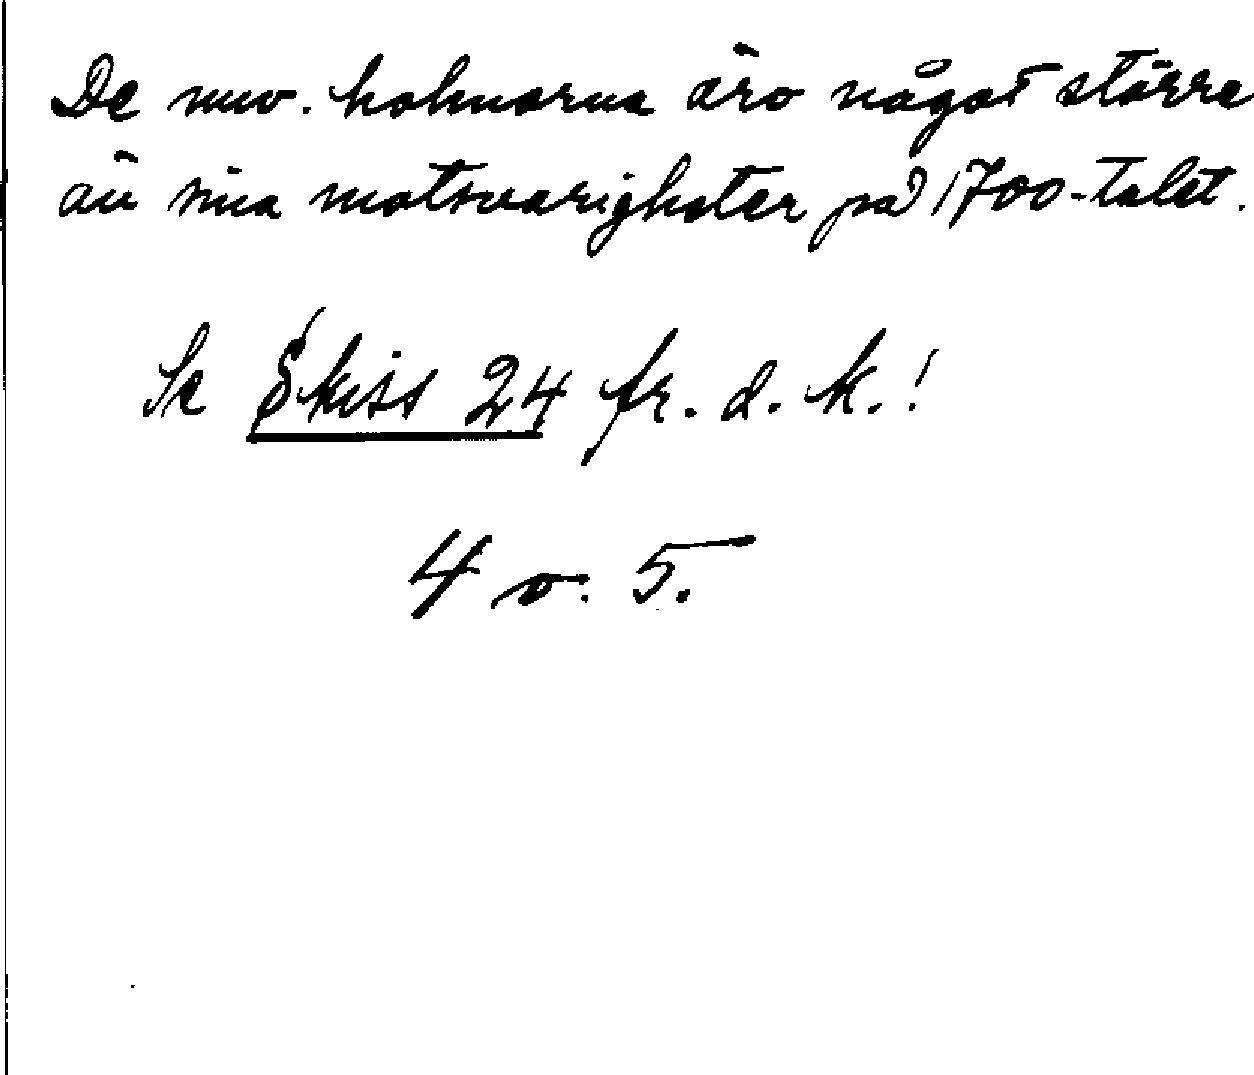 De nuv. holmarna äro något större
än sina motsvarigheter på 1700-talet.
Se Skiss 24 fr. d. k.!
4 v. 5.